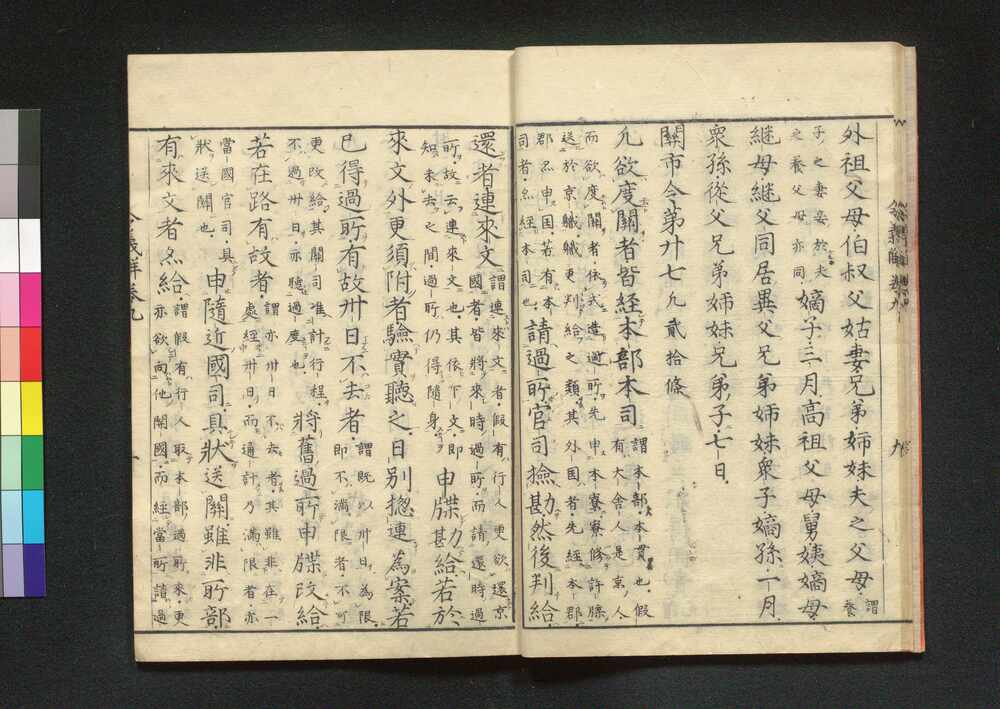 外祖父母伯叔父姑妻兄弟姉妹夫之父母謂養
子之妻妾於夫
之養父母亦同嫡子三月高祖父母舅姨嫡母
継母継父同居異父兄弟姉妹衆子嫡孫一月
衆孫従父兄弟姉妹兄弟子七日
関市令第廿七凡貳拾條
凡欲度關者皆経本部本司謂本部本貫也假
有大舎人是京人
而欲度關者依式造過所先申本寮寮修許牒
送於京職職更判給之類其外国者先経本郡
郡亦申国若有本
司者亦経本司也請過所官司撿勘然後判給
還者連來文謂連來文者假有行人更欲還京
國者皆將來時過所而請還時過
所故云連來文也其依下文即
知未去之間過所仍得隨身申牒勘給若於
來文外更須附者驗實聽之日別惣連為案若
已得過所有故卅日不去者謂既以卅日為限
即不滿限者不可
更改給其關司准計行程
不過卅日亦聽過度也將舊過所申牒改給
若在路有故者謂亦卅日不去者其雖非在一
處経卅日而通計乃滿限者亦
當國官司具
狀送關也申隨近國司具狀送關雖非所部
有來文者亦給謂假有行人取本部過所來更
亦欲向他關國而経當所請過